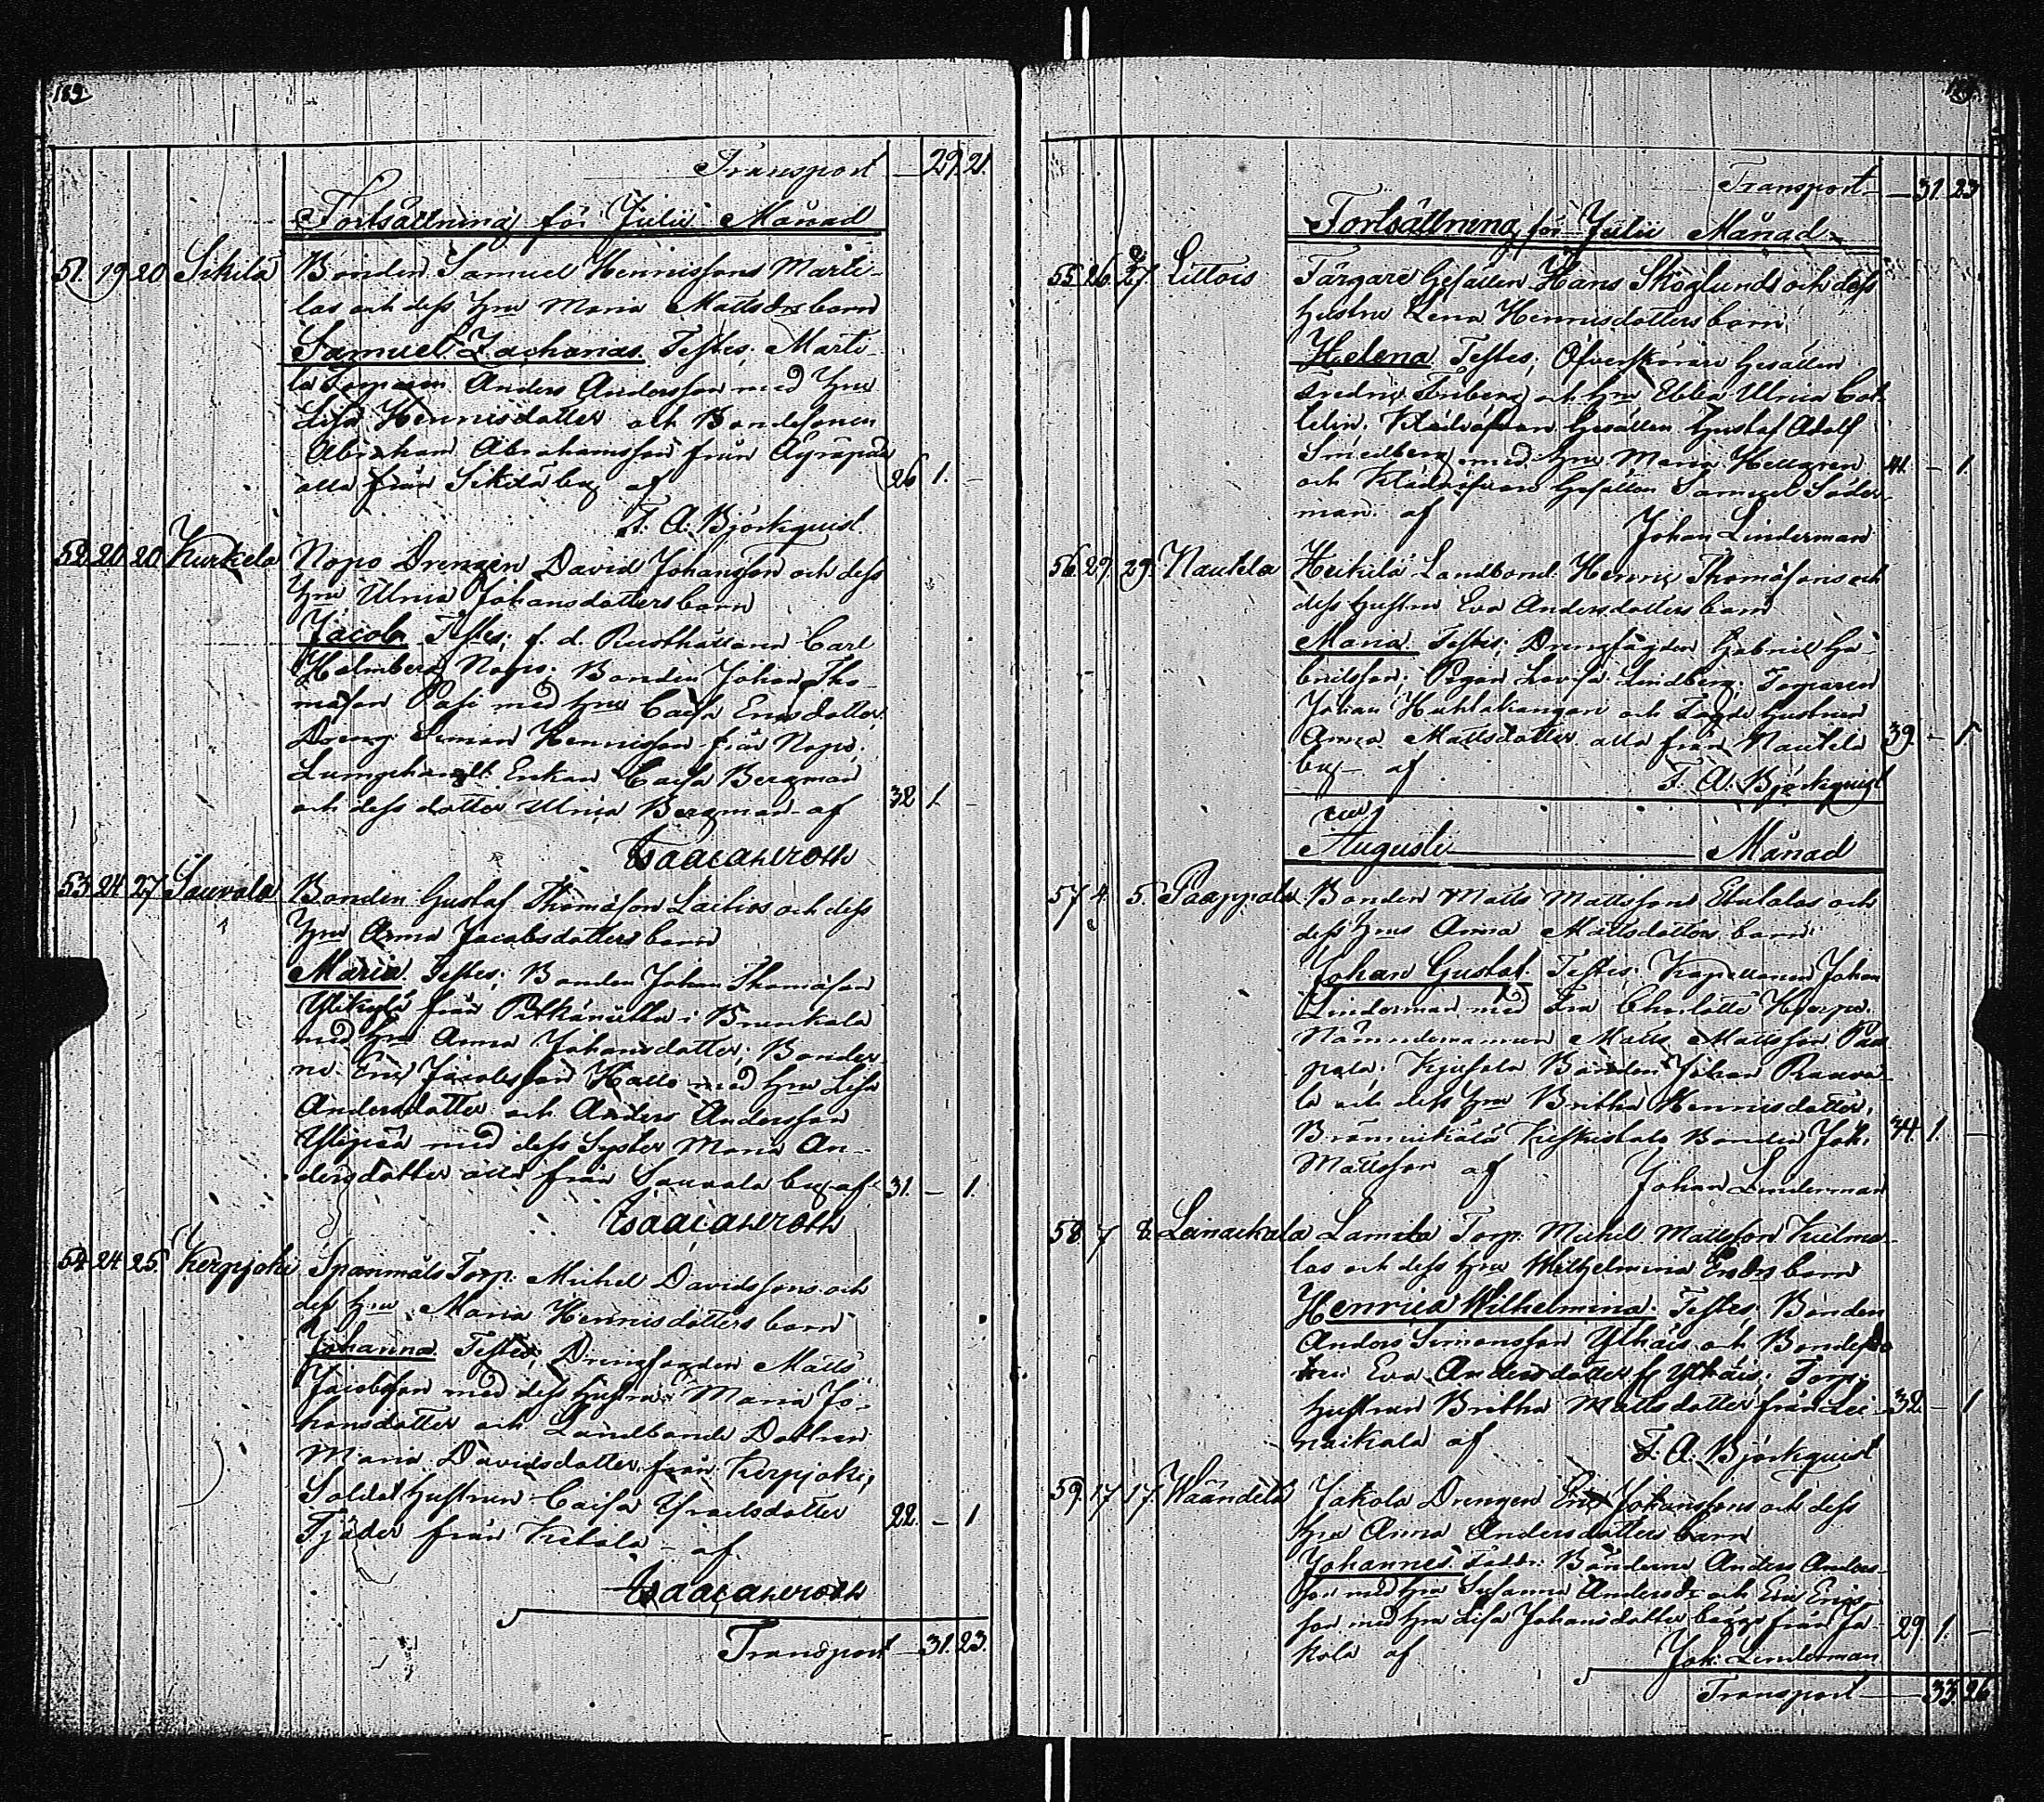 189.
Transport — 29. 21.
Fortsättning för Julii Månad
51. 19 20 Sikilä Bonden Samuel Henrissons Marti-
las och dess Hru Maria Mattsdrs barn
Samuel Zacharias. Testes, Marti-
la Torparen Anders Andersson med Hru
Lisa Henricsdotter och Bondesonen
Abraham Abrahamsson från Äyräpää
alla från Sikilä by af 26 1. –
F. A. Björkquist
52. 20. 20 Kurkela Nopo Drengen David Johansson och dess
Hru Ulrica Johansdotters barn
Jacob. Testes; f. d. Rusthållaren Carl
Holmberg Nopo. Bonden Johan Tho-
masson Pasi med Hru Caisa Ericsdotter
Dreng Simon Henricsson från Nopo.
Enkan Caisa Bergman
och dess dotter Ulrica Bergman – af 32 1. –
Isaac Ahlroth
53. 24. 27 Sauvala Bonden Gustaf Thomasson Laitios och dess
Hru Anna Jacobsdotters barn
Maria. Testes; Bonden Johan Thomasson
Ylikylä från i Brunkala
med Hru Anna Johansdotter; Bönder-
ne Eric Jacobsson Kallo med Hru Lisa
Andersdotter och Anders Andersson
med dess Syster Maria An-
dersdotter alla från Sauvala by – af 31. – 1.
Isaac Ahlroth
54. 24. 25. Kerpjoki Spannmåls Torp. Michel Davidssons och
dess Hru Maria Henricsdotters barn
Johanna. Testes; Drengfogden Matts
Jacobsson med dess Hustru Maria Jo-
hansdotter och Landbonde Dottren
Maria Davidsdotter från Kerpjoki;
Soldat Hustrun Caisa Israelsdotter
Tjäder från Ketola – af 22. – 1
Isaac Ahlroth
Transport — 31. 23.
Transport — 31. 23
Fortsättning för Julii Månad
55. 26. 27. Littois Färgare Gesällen Hans Skoglunds och dess
Hustru Lena Henricsdotters barn
Helena. Testes, Öfverskärare Gesällen
Fredric Friberg och Hru Ebba Ulrica Cat-
Gesällen Gustaf Adolf
Smedberg med Hru Maria Hellgren 41. – 1.
och Gesällen Samuel Söder-
man. af
Johan Linderman
56. 29. 29. Nautela Heikilä Landbond. Henric Thomassons och
dess Hustru Eva Andersdotters barn
Maria. Testes; Drengfogden Gabriel Ga-
brielsson; Pigan Lovisa Lindberg; Torparen
Johan Huhtakangas och Hustrun
Anna Mattsdotter alla från Nautela 39. – 1
by – af
F. A. Björkquist
Augusti — Månad
57 4. 5. Paappala Bonden Matts Mattssons Etulalas och
dess Hrus Anna Mattsdotters barn
Johan Gustaf. Testes: Kapellanen Johan
Linderman med Fru Charlotte
Nämndemannen Matts Mattsson Paa-
pala. Bonden Johan Raava-
la och dess Hru Britha Henricsdotter,
Bonden Joh. 34. 1. –
Mattsson af
Johan Linderman
58. 7 8. Leinaikala Lamila Torp. Michel Mattsson Kulma-
las och dess Hru Wilhelmina Ersdrs barn
Henrica Wilhelmina. Testes; Bonden
Anders Simonsson Ylhäis och Bondehu-
stru Eva Andersdotter fr. Ylhäis; Torp.
Hustrun Britha Mattsdotter från Lei- 32. – 1
naikala af
F. A. Björkquist
59. 17 17. Waändelä Jakola Drengen Eric Johanssons och dess
Hru Anna Andersdotters barn
Johannes. Faddr: Bönderne Anders Anders-
son med Hru Susanna Andersdr och Eric Erics-
son med Hru Lisa Johansdotter bägge från Ja- 29 1. –
kola af
Joh: Linderman
Transport — 33. 26.